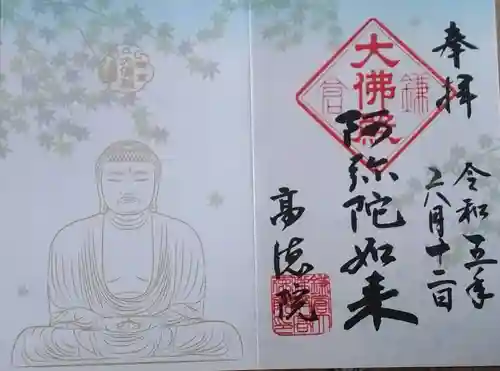 奉拝
令和五年
六月十二日
大佛殿
鎌倉
阿弥陀如来
高徳院